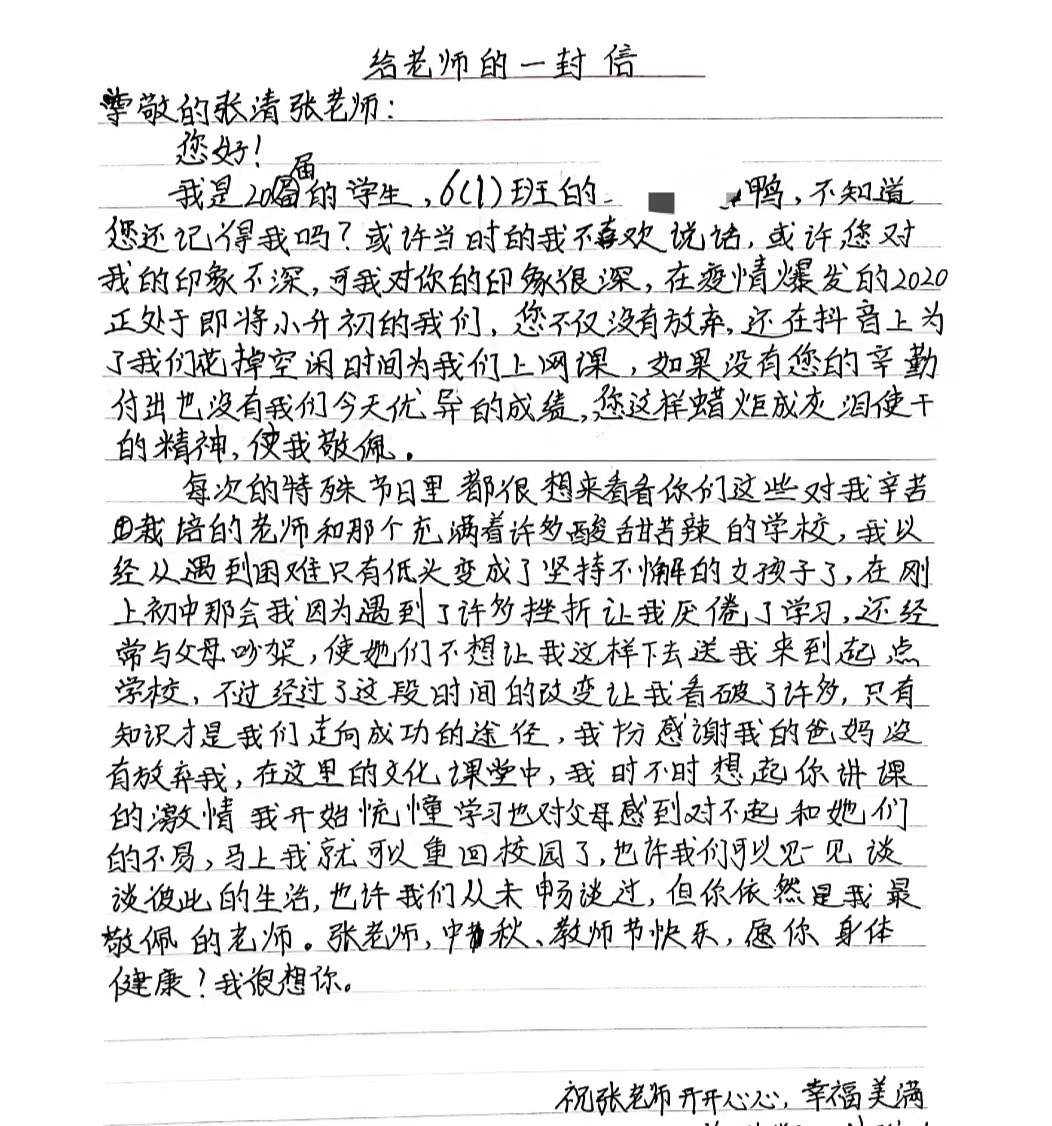 给老师的一封信
尊敬的张清张老师：
您好！
我是20届的学生，6(1)班的 鸭，不知道
您还记得我吗？或许当时的我不喜欢说话，或许您对
我的印象不深，可我对你的印象很深，在疫情爆发的2020
正处于即将小升初的我们，您不仅没有放弃，还在抖音上为
了我们花掉空闲时间为我们上网课，如果没有您的辛勤
付出也没有我们今天优异的成绩，您这样蜡炬成灰泪使干
的精神，使我敬佩。
每次的特殊节日里都很想来看看你们这些对我辛苦
栽培的老师和那个充满着许多酸甜苦辣的学校，我以
经从遇到困难只有低头变成了坚持不懈的女孩子了，在刚
上初中那会我因为遇到了许多挫折让我厌倦了学习，还经
常与父母吵架，使她们不想让我这样下去送我来到起点
学校，不过经过了这段时间的改变让我看破了许多，只有
知识才是我们走向成功的途径，我扮感谢我的爸妈没
有放弃我，在这里的文化课堂中，我时不时想起你讲课
的激情我开始忱憧学习也对父母感到对不起和她们
的不易，马上我就可以重回校园了，也许我们可以见一见谈
谈彼此的生活，也许我们从未畅谈过，但你依然是我最
敬佩的老师。张老师，中秋、教师节快乐，愿你身体
健康！我很想你。
祝张老师开开心心，幸福美满